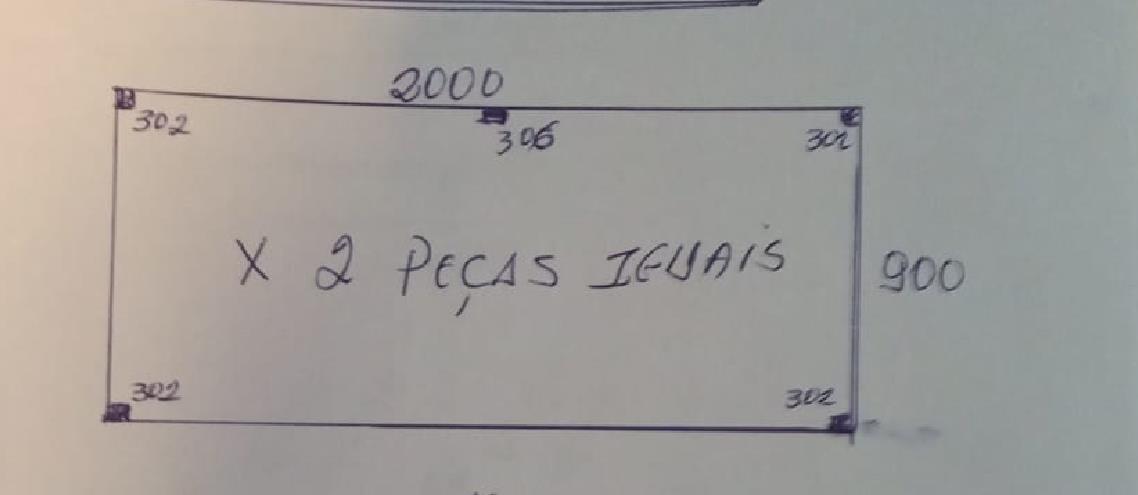 2000
302
306
302
X 2 PEÇAS IGUAIS
900
302
302